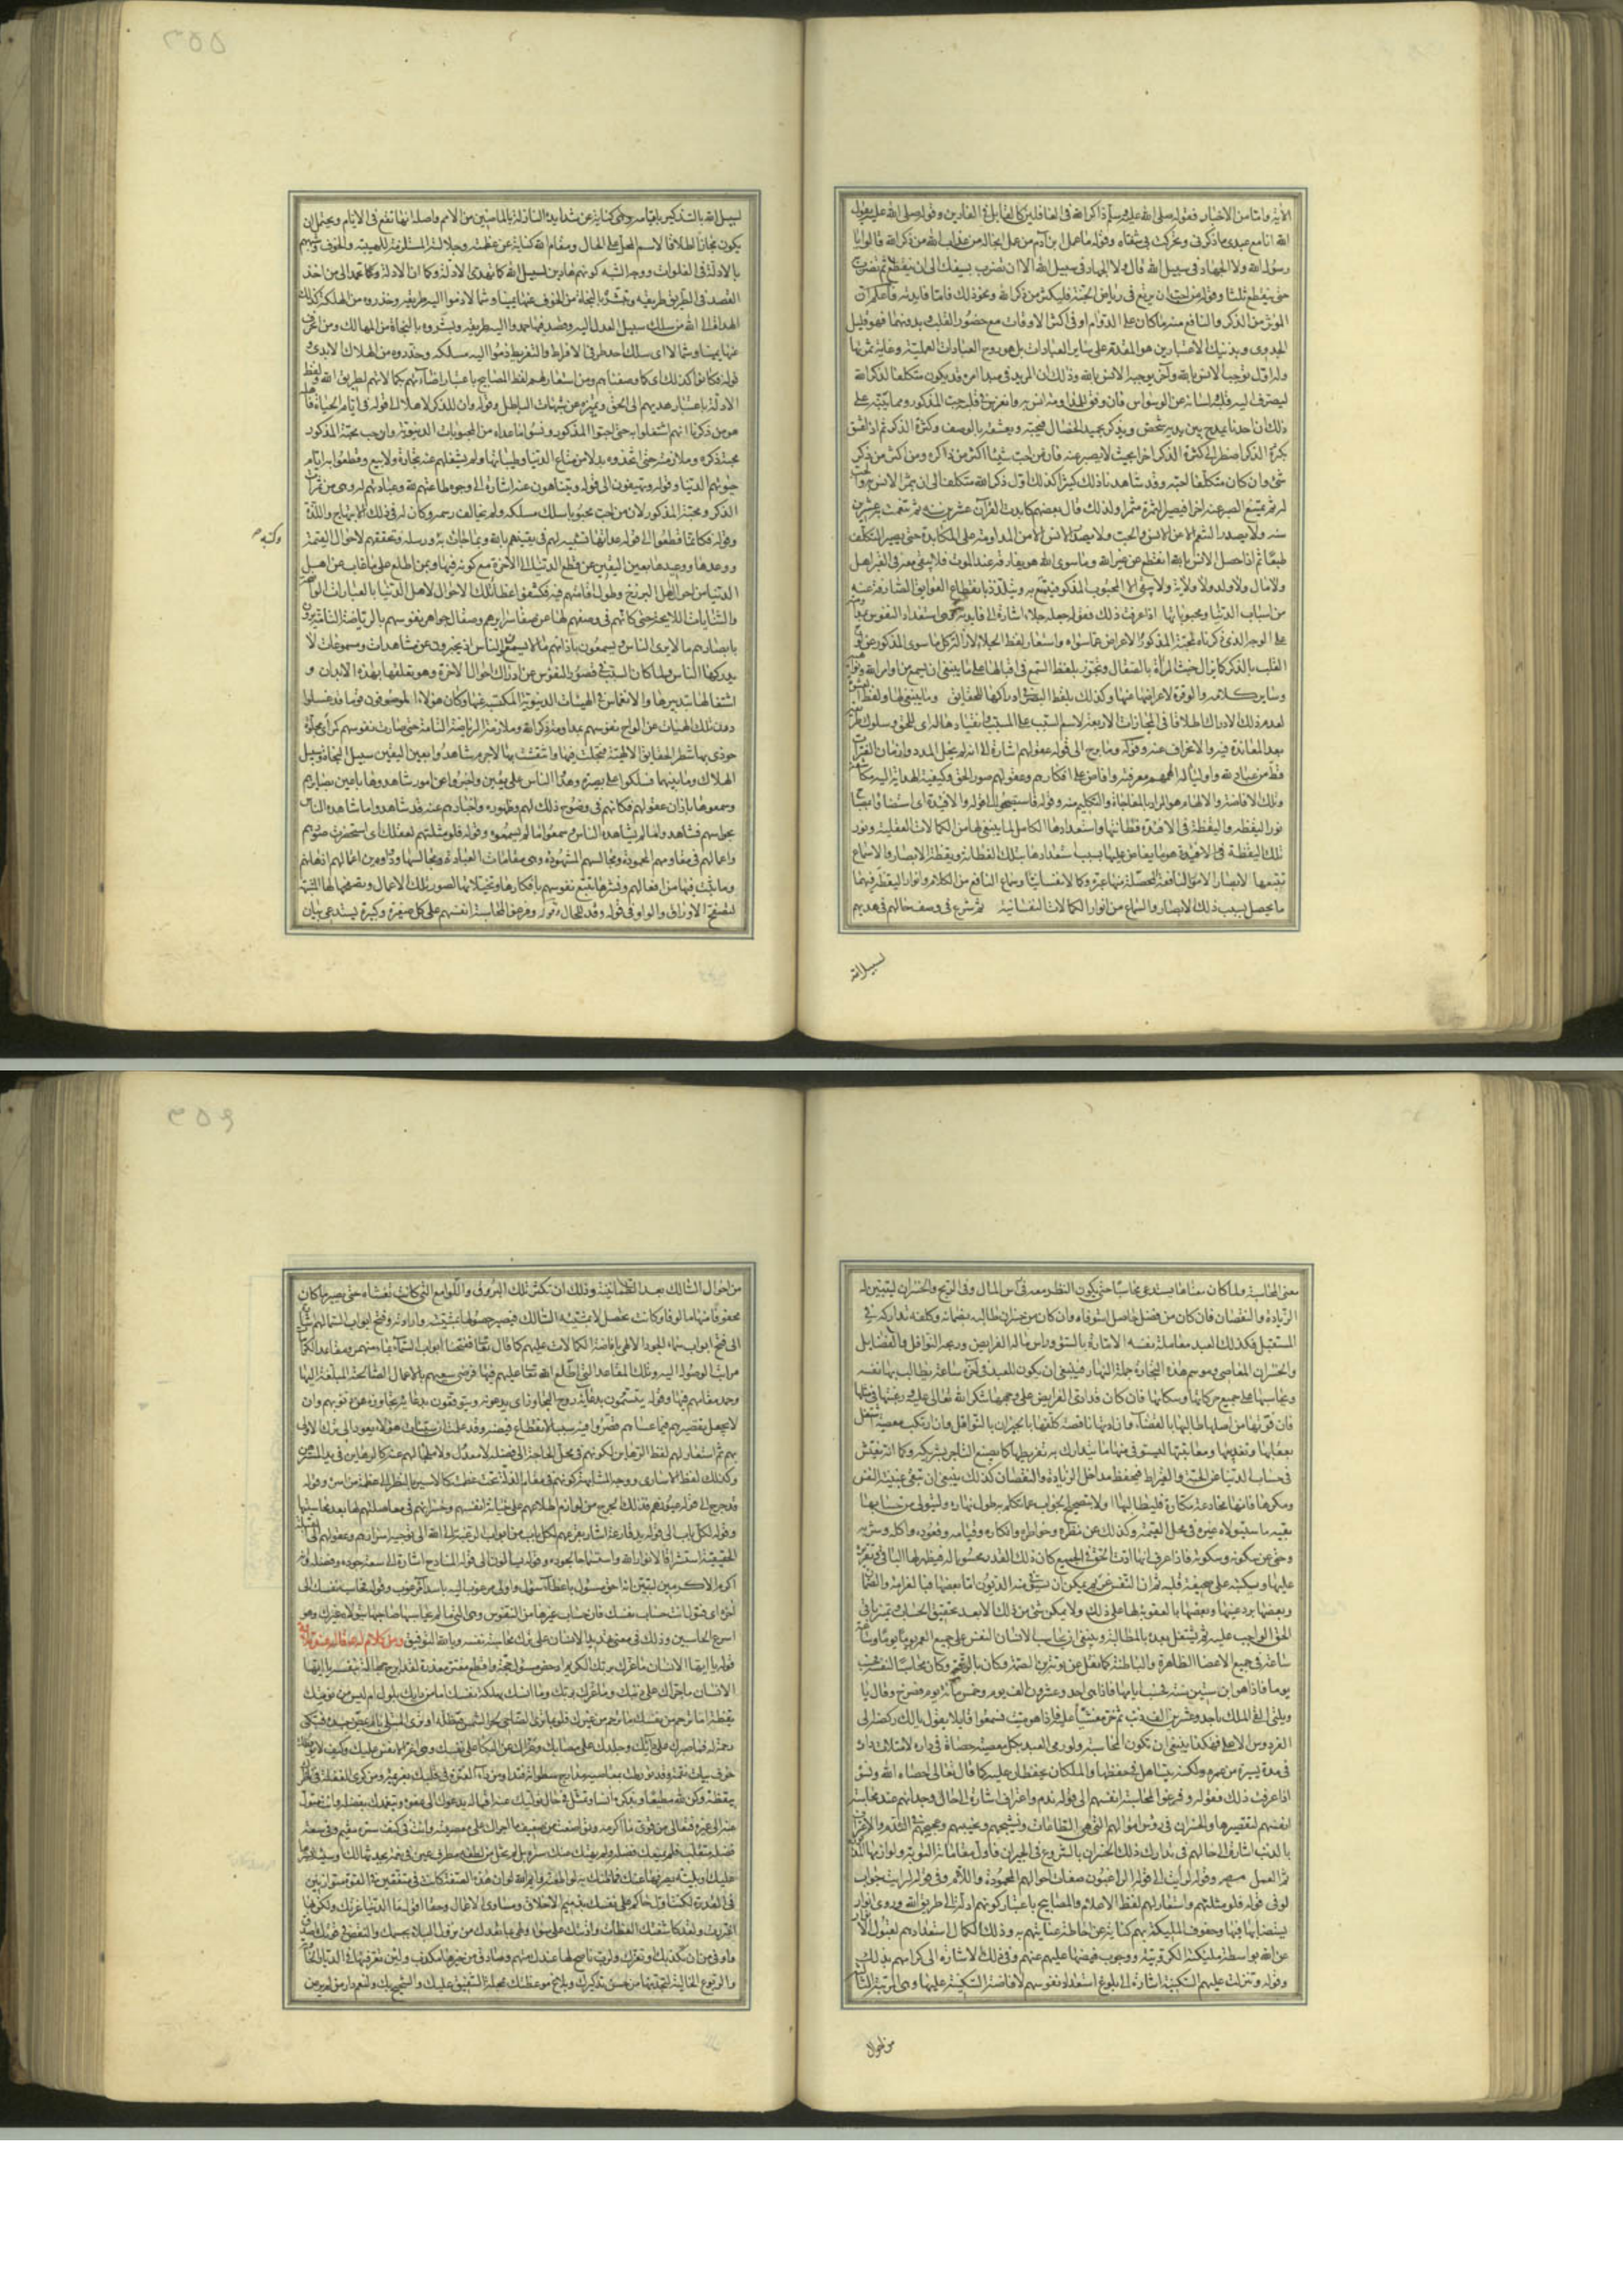 الآية واما من الاخبار فقوله صلى الله عليه وسلم ذاكر الله في الغافلين كالمقابل في الفارين وقوله صلى الله عليه يقول
الله انا مع عبدي ما ذكرني وتحركت بي شفتاه وقوله ما عمل ابن آدم من عمل انجا له من عذاب الله من ذكر الله قالوا يا
رسول الله ولا الجهاد في سبيل الله قال ولا الجهاد في سبيل الله الا ان تضرب بسيفك الى ان ينقطع ثم تضرب
حتى ينقطع ثلثا وقوله من احب ان يرتع في رياض الجنة فليكثر من ذكر الله ونحو ذلك فاما فايدته فاعلم ان
المؤثر من الذكر والنافع منه ما كان على الدوام او في اكثر الاوقات مع حضور القلب وبدونهما فهو قليل
الجدوى وبذينك الاعتبارين هو المقدم على ساير العبادات بل هو روح العبادات العملية وغاية ثمرتها
وله اول يوجب الانس بالله وآخر يوجبه الانس بالله وذلك ان المريد في مبدأ امره قد يكون متكلفا لذكر الله
ليصرف اليه قلبه ولسانه عن الوسواس فان وفق للمداومة انس به وانغرس في قلبه حب المذكور ومما ينبه على
ذلك ان احدنا يمدح بين يديه شخص ويذكر بحميد الخصال فيحبه ويعشقه بالوصف وكثرة الذكر ثم اذا عشق
بكثرة الذكر اضطر الى كثرة الذكر اخرا بحيث لا يصبر عنه فان من احب شيئا اكثر من ذكره ومن اكثر من ذكر
شئ وان كان متكلفا احبه وقد شاهدنا ذلك كثيرا كذلك اول ذكر الله متكلف الى ان يثمر الانس به والحب
له ثم يمتنع الصبر عنه اخرا فيصير الثمرة مثمرا ولذلك قال بعضهم كابدت القرآن عشرين سنة ثم تنعمت به عشرين
سنة ولا يصدر التنعم الا عن الانس والحب ولا يصدر الانس الا من المداومة على المكابدة حتى يصير التكلف
طبعا ثم اذا حصل الانس بالله انقطع عن غير الله وما سوى الله هو يفارقه عند الموت فلا يبقى معه في القبر اهل
ولا مال ولا ولد ولا ولاية ولا يبقى الا المحبوب المذكور فيتمتع به ويتلذذ بانقطاع العوايق الصارفة عنه
من اسباب الدنيا ومحبوباتها اذا عرفت ذلك فقوله جعله جلاء اشارة الى فايدته وهي استعداد النفوس
على الوجه الذي ذكرناه لمحبة المذكور والاعراض عما سواه واستعار لفظ الجلاء لازالة كل ما سوى المذكور عن
القلب بالذكر كما يزال خبث المرآة بالصقال وتجوز بلفظ السمع في اقبالها على ما ينبغي ان يسمع من اوامر الله
وساير كلامه والوقرة لاعراضها عنها وكذلك بلفظ البصر في ادراكها للحقايق وما ينبغي لها ولفظ
لعدم ذلك الادراك اطلاقا في المجازات الاربعة لاسم السبب على المسبب وانقيادها له اي للحق وسلوك
بعد المعاندة فيه والانحراف عنه وقوله وما برح الى قوله عقولهم اشارة الى انه لم يخل المدد وازمان الفترات
قط من عباد لله واولياء له الهمهم معرفته وافاض على افكارهم وعقولهم صور الحق وكيفية الهداية اليه
وتلك الافاضة والالهام هو المراد بالمناجاة والتكليم منه وقوله فاستصبحوا الى قوله والافئدة اي استضاؤا بمصباح
نور اليقظة واليقظة في الافئدة فطانتها واستعدادها الكامل لما ينبغي لها من الكمالات العقلية ونور
تلك اليقظة في الافئدة هو ما يفاض عليها بسبب استعدادها بتلك الفطانة ويقظة الابصار والاسماع
تتبعها الابصار الامور النافعة المحصلة منها عبرة وكمالا نفسانيا وسماع النافع من الكلام وانوار اليقظة فيهما
ما يحصل بسبب ذلك الابصار والسماع من انوار الكمالات النفسانية ثم شرع في وصف حالهم في هديهم
لسبيل الله
لسبيل الله بالتذكير بايامه وهي كناية عن شدايده النازلة بالماضين من الامم واصله انها تقع في الايام ويحتمل ان
يكون مجازا اطلاقا لاسم المحل على الحال ومقام الله كناية عن عظمته وجلالته المستلزمة للهيبة والخوف
بالادلة في الفلوات ووجه الشبه كونهم هادين لسبيل الله كما تهدي الادلة وكما ان الادلة وكما تحمد الى من اخذ
القصد في الطريق طريقه وتبشره بالنجاة ومن انحرف عنها يمينا وشمالا ذموا اليه طريقه وحذروه من الهلكة كذلك
الهداة الى الله من سلك سبيل العدل اليه وقصد فيها حمدوا اليه طريقه وبشروه بالنجاة من المهالك ومن انحرف
عنها يمينا وشمالا اي سلك احد طرفي الافراط والتفريط ذموا اليه مسلكه وحذروه من الهلاك الابدي
قوله فكانوا كذلك اي كما وصفناهم ومن استعار لهم لفظ المصابيح باعتبار اضاءتهم بكمالاتهم لطريق الله ولفظ
الادلة باعتبار هديهم الى الحق وتميزه عن شبهات الباطل وقوله وان للذكر لاهلا الى قوله في ايام الحياة
هو من ذكرنا انهم اشتغلوا به حتى احبوا المذكور ونسوا ما عداه من المحبوبات الدنيوية وان حب محبة المذكور
محبة ذكره وملازمته حتى اتخذوه بدلا من متاع الدنيا وطيباتها ولم يشغلهم عنه تجارة ولا بيع وقطعوا به ايام
حيوتهم الدنيا وقوله ويهتفون الى قوله ويتناهون عنه اشارة الى وجوه طاعتهم لله وعبادتهم له وهي من ثمرات
الذكر ومحبة المذكور لان من احب محبوبا سلك مسلكه ولم يخالف رسمه وكان له في ذلك الابتهاج واللذة
وكتبه م
وقوله فكانما قطعوا الى قوله عداتها تشبيه لهم في يقينهم بالله وبما جاءت به رسله وتحققهم لاحوال القيمة
ووعدها ووعيدها بعين اليقين عن قطع الدنيا الى الآخرة مع كونه فيها وممن اطلع على ما غاب عن اهل
الدنيا من احوال اهل البرزخ وطول اقامتهم فيه فكشفوا غطاء تلك الاحوال لاهل الدنيا بالعبارات
بابصارهم ما لا يرى الناس ويسمعون باذانهم ما لا يسمع الناس اذ يخبرون عن مشاهدات ومسموعات لا
يدركها الناس ولما كان السبب في قصور النفوس عن ادراك احوال الآخرة وهو تعلقها بهذه الابدان و
اشتغالها بتدبيرها والانغماس في الهيئات الدنيوية المكتسبة عنها وكان هؤلاء الموصوفون قوما قد غسلوا
درن تلك الهيئات عن الواح نفوسهم بمداومة ذكر الله وملازمة الرياضة التامة حتى صارت نفوسهم كمرآئ مجلوة
حوذي بها شطر الحقايق الالهية فتجلت فيها وانتقشت بها لا جرم شاهدوا بعين اليقين سبيل النجاة وسبيل
الهلاك وما بينهما فسلكوا على بصيرة وهدوا الناس على يقين واخبروا عن امور شاهدوها باعين بصايرهم
وسمعوها باذان عقولهم فكانهم في وضوح ذلك لهم وظهوره واخبارهم عنه قد شاهدوا ما شاهده الناس
بحواسهم فشاهدوا ما لم يشاهده الناس وسمعوا ما لم يسمعوه وقوله فلو مثلتهم لعقلك اي استحضرت صورهم
واعمالهم في مقاومهم المحمودة ومجالسهم المشهودة وهي مقامات العبادة ومجالسها ودواوين اعمالهم اذهانهم
وما ثبت فيها من افعالهم ونشرها تتبع نفوسهم بافكارها وتخيلاتها لصور تلك الاعمال وتصفحها لها
لتصفح الاوراق والواو في قوله وقد للحال وقوله وفرغوا لمحاسبة انفسهم على كل صغيرة وكبيرة يستدعي بيان
معنى المحاسبة ولما كان معناها يستدعي محاسبا حتى يكون النظر معه في رأس المال وفي الربح والخسران ليتبين له
الزيادة والنقصان فان كان من فضل حاصل استوفاه وان كان من خسران طالبه بضمانه وكلفه تداركه في
المستقبل فكذلك العبد معامله نفسه الامارة بالسوء وراس ماله الفرايض وربحه النوافل والفضايل
والخسران المعاصي وموسم هذه التجارة جملة النهار فينبغي ان يكون للعبد في آخره ساعة يطالب بها نفسه
ويحاسبها على جميع حركاتها وسكناتها فان كان قد ادى الفرايض على وجهها شكر الله تعالى عليه ورغبها في مثلها
فان فوتها من اصلها طالبها بالقضاء وان ادتها ناقصة كلفها بالجبران بالنوافل وان ارتكب معصية اشتغل
بعقابها وتعذيبها ومعاتبتها ليستوفي منها ما يتدارك به تفريطها كما يصنع التاجر بشريكه وكما انه يفتش
في حساب الدنيا عن الحبة والقيراط فيحفظ مداخل الزيادة والنقصان كذلك ينبغي ان تبقى غبينة النفس
ومكرها فانها خداعة مكارة فليطالبها اولا بتصحيح الجواب عما تكلم به طول نهاره وليتولى من حسابها
بنفسه ما سيتولاه غيره في محفل القيمة وكذلك عن نظره وخواطره وافكاره وقيامه وقعوده واكله وشربه
وحتى عن سكوته وسكونه فاذا عرف انها ادت الحق في الجميع كان ذلك القدر محسوبا له فيظهر لها الباقي
عليها ويكتبه على صحيفة قلبه ثم ان النفس غريم يمكن ان يستوفي منه الديون اما بعضها فبالغرامة والضمان
وبعضها برد عينها وبعضها بالعقوبة لها على ذلك ولا يمكن شئ من ذلك الا بعد تحقيق الحساب وتميز باقي
الحق الواجب عليه ثم يشتغل بعده بالمطالبة وينبغي ان يحاسب الانسان النفس على جميع العمر يوما يوما وساعة
ساعة في جميع الاعضا الظاهرة والباطنة كما نقل عن توبة بن الصمة وكان بالرقة وكان محاسبا لنفسه فحسب
يوما فاذا هو ابن ستين سنة فحسب ايامها فاذا هي احد وعشرون الف يوم وخمس مأة يوم فصرخ وقال يا
ويلتي القى الملك باحد وعشرين الف ذنب ثم خر مغشيا عليه فاذا هو ميت فسمعوا قايلا يقول يا لك ركضة الى
الفردوس الاعلى فهكذا ينبغي ان تكون المحاسبة ولو رمى العبد بكل معصية حصاة في داره لامتلات داره
في مدة يسيرة من عمره ولكنه يتساهل في حفظها والملكان يحفظان عليه كما قال تعالى احصاه الله ونسوه
اذا عرفت ذلك فقوله وفرغوا لمحاسبة انفسهم الى قوله ندم واعتراف اشارة الى حال وجدانهم عند محاسبة
انفسهم لتقصيرها والخسران في رؤس اموالهم التي هي الطاعات ونشيجهم ونحيبهم وعجيجهم في الندم والاعتراف
بالذنب اشارة الى حالهم في تدارك ذلك الخسران بالشروع في الجبران فاول مقاماته التوبة ولوازمها
ثم العمل وقوله لرأيت الى قوله الراغبون صفات احوالهم المحمودة واللام في قوله لرأيت جواب
لو في قوله فلو مثلتهم واستعار لهم لفظ الاعلام والمصابيح باعتبار كونهم ادلة الى طريق الله وذوي انوار
يستضاء بها فيها وحفوف الملئكة بهم كناية عن احاطة عنايتهم به وذلك لكمال استعدادهم لقبول
عن الله بواسطة ملئكته الكروبية ووجوب فيضها عليهم عنهم وفي ذلك الاشارة الى اكرامهم بذلك
وقوله وتنزلت عليهم السكينة اشارة الى بلوغ استعداد نفوسهم لافاضة السكينة عليها وهي المرتبة
من احوال
من احوال السالك بعد الطمأنينة وذلك ان تكثر تلك البروق واللوامع التي كانت تغشاه حتى يصير ما كان
مخوفا منها مالوفا وكانت تحصل لا بمشيئة السالك فيصير حصولها بمشيته وارادته وفتح ابواب السماء لهم
الى فتح ابواب سماء الجود الالهي بافاضة الكمالات عليهم كما قال تعالى ففتحنا ابواب السماء بماء منهمر ومقاعد
مراتب الوصول اليه وتلك المقاعد التي اطلع الله تعالى عليهم فيها فرضى سعيهم بالاعمال الصالحة المبلغة اليها
وحمد مقامهم فيها وقوله يتنسمون بدعائه روح التجاوز اي يدعونه ويتوقعون بدعائه تجاوزه عن ذنوبهم وان
لا يجعل تقصيرهم فيما عساهم قصروا فيه سببا لانقطاع فيضه وقد علمت ان سيئات هؤلاء يعود الى ترك الاولى
بهم ثم استعار لهم لفظ الرهاين لكونهم في محل الحاجة الى فضله لا معدل ولا ملجأ لهم عنه كالرهاين في يد
وكذلك لفظ الاسارى ووجه المشابهة كونهم في مقام الذلة تحت عظمته كالاسير بالنظر الى عظمة من اسره وقوله
قد جرح الى قوله عيونهم فذلك الجرح من لوازم اطلاعهم على خيانة انفسهم وخسرانهم في معاملتهم لها بعد محاسبتها
وقوله لكل باب الى قوله يد قارعة اشار بقرعهم لكل باب من ابواب الرغبة الى الله الى توجيه اسرارهم وعقولهم الى
الحقيقية استشراقا لانوار الله واستسماحا لجوده وقوله يسألون الى قوله المنادح اشارة الى سعة جوده وفضله
اكرم الاكرمين ليتبين انه احق مسؤل باعطاء سؤل واولى مرغوب اليه باسداء مرغوب وقوله فحاسب نفسك الى
آخره اي فتول انت حساب نفسك فان حساب غيرها من النفوس وهي التي لم تحاسبها صاحبها يتولاه غيرك وهو
اسرع الحاسبين وذلك في معنى تهديد الانسان على ترك محاسبة نفسه وبالله التوفيق ومن كلام له ع قاله عند تلاوته
قوله يا ايها الانسان ما غرك بربك الكريم ادحض مسؤل حجة واقطع مغتر معذرة لقد ابرح جهالة بنفسه يا ايها
الانسان ما جرأك على ذنبك وما غرك بربك وما آنسك بهلكة نفسك اما من دائك بلول ام ليس من نومك
يقظة اما ترحم من نفسك ما ترحم من غيرك فلربما ترى الضاحي بحر الشمس فتظله او ترى المبتلى بالم يمض جسده فتبكي
رحمة له فما صبرك على دائك وجلدك على مصابك وعزاك عن البكاء على نفسك وهي اعز الانفس عليك وكيف لا يوقظك
خوف بيات نقمة وقد تورطت بمعاصيه مدارج سطواته فتداو من داء الفترة في قلبك بعزيمة ومن كرى الغفلة في ناظرك
بيقظة وكن لله مطيعا وبذكره آنسا وتمثل في حال توليك عنه اقباله يدعوك الى عفوه ويتغمدك بفضله وانت متول
عنه الى غيره فتعالى من قوي ما اكرمه وتواضعت من ضعيف ما اجرأك على معصيته وانت في كنف ستره مقيم وفي سعة
فضله متقلب فلم يمنعك فضله ولم يهتك عنك ستره بل لم تخل من لطفه مطرف عين في نعمة يحدثها لك او سيئة يسترها
عليك او بلية يصرفها عنك فما ظنك به لو اطعته وايم الله لو ان هذه الصفة كانت في متفقين في القوة متوازيين
في القدرة لكنت اول حاكم على نفسك بذميم الاخلاق ومساوى الاعمال وحقا اقول ما الدنيا غرتك ولكن بها
اغتررت ولقد كاشفتك العظات وآذنتك على سواء ولهي بما تعدك من نزول البلاء بجسمك والنقص في قوتك اصدق
واوفى من ان تكذبك او تغرك ولرب ناصح لها عندك متهم وصادق من خبرها مكذب ولئن تعرفتها في الديار الخاوية
والربوع الخالية لتجدنها من حسن تذكيرك وبلاغ موعظتك بمحلة الشفيق عليك والشحيح بك ولنعم دار من لم يرض